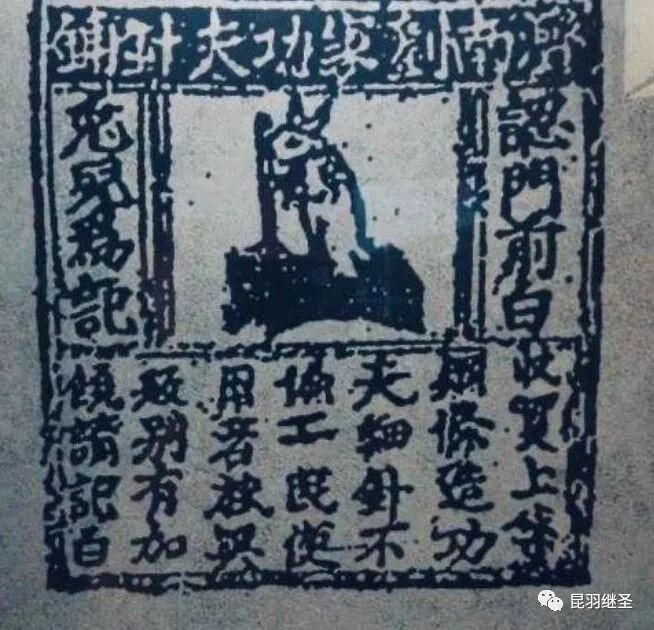 濟南劉家功夫針鋪
認門前白
兔兒為記
收買上等
鋼條造功
夫細針不
偷工民便
用若被興
販別有加
饒請記白
昆羽继圣